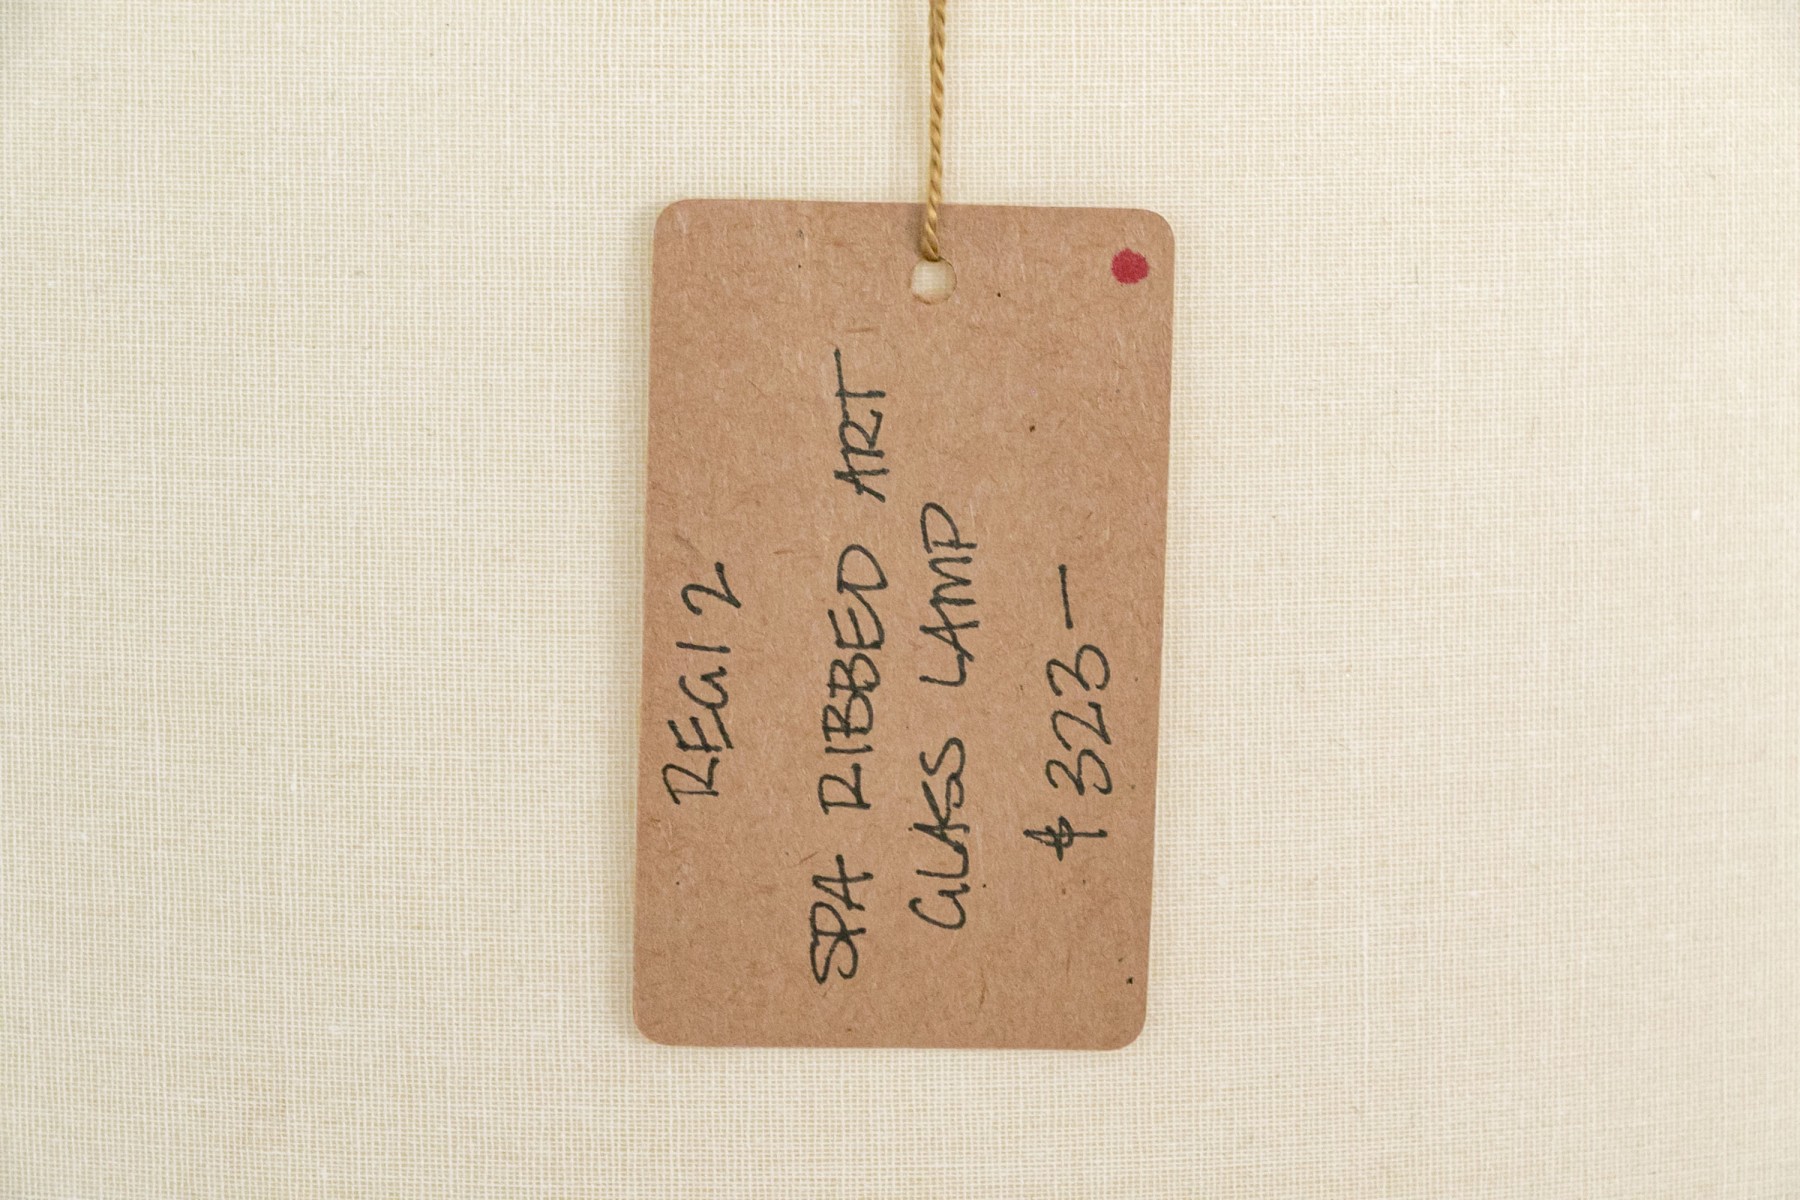 REG12
SPA RIBBED ART
GLASS LAMP
$323-